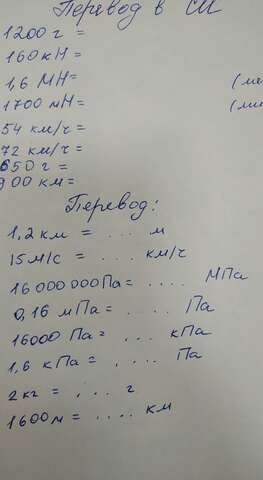 Перевод в СИ
1200 г =
160 кН =
1,6 МН =
1700 мН =
54 км/ч =
72 км/ч =
650 г =
900 км =
Перевод:
1,2 км = ... м
15 м/с = ... км/ч
16 000 000 Па = .... МПа
0,16 мПа = .... Па
16000 Па = ... кПа
1,6 кПа = .... Па
2 кг = .... г
1600 м = .... км